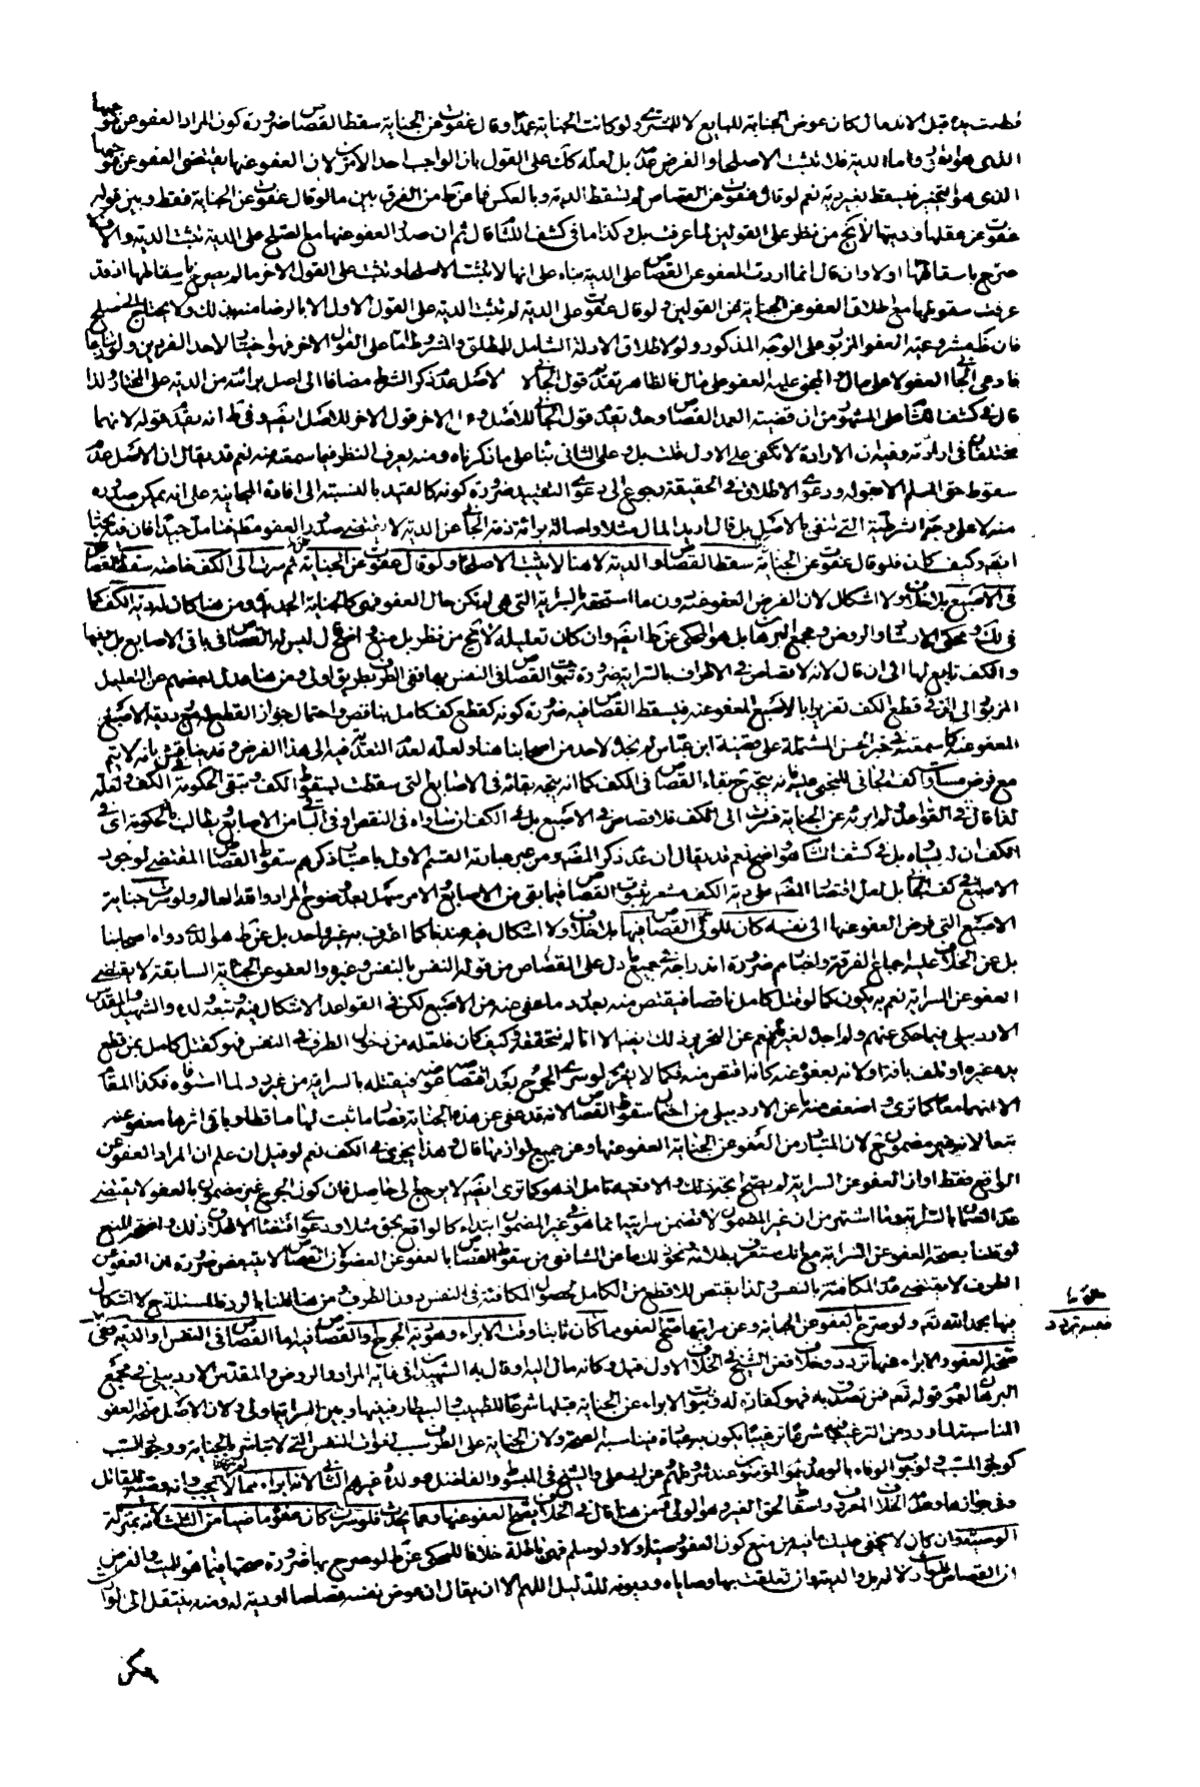 قطعت يده قبل الاندمال كان عوض الجناية للبايع لا للمشتري ولو كانت الجناية عمدا وقال عفوت عن الجناية سقط القصاص ضرورة كون المراد العفو عن موجبها
الذي هو القود واما الدية فلا تثبت الا صلحا والفرض عدمه بل لعله كك على القول بان الواجب احد الامرين لان العفو عنها يقتضى العفو عن موجبها
الذى هو التخيير فيسقط بغير دية نعم لو قال عفوت عن القصاص لم تسقط الدية وبالعكس فما عن ط من الفرق بين ما لو قال عفوت عن الجناية فقط وبين قوله
عفوت عن عقلها وديتها لا يخ من نظر على القولين لما عرفت بل وكذا ما في كشف اللثام قال ثم ان صدر العفو عنها مع الصلح على الدية تثبت الدية والا فان
صرح باسقاطها اولا وان قال انما اردت العفو عن القصاص على الدية بناء على انها لا تثبت الا صلحا وتثبت على القول الاخر ما لم يصرح باسقاطها اذ قد
عرفت سقوطها مع اطلاق العفو عن الجناية عن القولين ولو قال عفوت على الدية لم تثبت الدية على القول الاول الا بالرضا منهما بذلك ولا يحتاج الى صلح
فان ظ مشروعية العفو المزبور على الوجه المذكور ولو لاطلاق الادلة الشامل للمطلق والمشروط اما على القول الاخر فهو اختيار لاحد الفردين ولو تنازعا
فادعى الجاني العفو لا على مال والمجنى عليه العفو على مال فالظاهر تقديم قول الجاني لاصل عدم ذكر الشرط مضافا الى اصل برائته من الدية على المختار ولذا
قال في كشف اللثام على المشهور من ان قضيته العمد القصاص وحده تقديم قول الجاني للاصل وعلى الاخر قول الاخر للاصل ايضا وفي ط انه يقدم قوله لانهما
مختلفان في ارادته وفيه ان الارادة لا تكفى على الاول قلت بل وعلى الثاني بناء على ما ذكرناه ومنه يعرف النظر فيما سمعته منه نعم قد يقال ان الاصل عدم
سقوط حق المسلم الا بقوله ودعوى الاطلاق في الحقيقة رجوع الى دعوى التقييد ضرورة كونه كالعقد بالنسبة الى افادة المجانية على انه يمكن صدوره
منه لا على وجه الشرطية التي تنفى بالاصل بل قال اريد المال مثلا واصالة برائة ذمة الجاني عن الدية لا تقتضى صدور العفو مطلقا فتامل جيدا فان فيه بحثا
ايضا وكيف كان فلو قال عفوت عن الجناية سقط القصاص والدية لانها لا تثبت الا صلحا ولو قال عفوت عن الجناية ثم سرت الى الكف خاصة سقط القصاص
في الاصبع بلا خلاف ولا اشكال لان الفرض العفو عنه دون ما استحقه بالسراية التي هي لم تكن حال العفو فهى كالجناية الجديدة ومن هنا كان له دية الكف كما
في لك ومحكى الارشاد والروض ومجمع البرهان بل هو المحكى عن ط ايضا وان كان تعليله لا يخ من نظر بل منع واضح قال ليس له القصاص في باقى الاصابع بل ديتها
والكف تابع لها الى ان قال لانه لا قصاص في الاطراف بالسراية ضرورة ثبوت القصاص في النفس بها ففى الطرف بطريق اولى ومن هنا عدل بعضهم عن التعليل
المزبور الى ان في قطع الكف تغريرا بالاصبع المعفو عنه فيسقط القصاص فيه ضرورة كونه كقطع كف كامل بناقص واحتمال جواز القطع مع رد دية الاصبع
المعفو عنه كما سمعته في خبر الحسن المشتملة على قضية ابن عباس لم نجده لاحد من اصحابنا هنا ولعله لعدم التعدية فيه الى هذا الفرض وقد يناقش بانه لا يتم
مع فرض مساواة كف الجانى للمجنى عليه فانه يتجه ح بقاء القصاص في الكف كما انه يتجه بقائه في الاصابع التي سقطت لسقوط الكف وتبقى الحكومة في الكف ولعله
لذا قال في القواعد لو ابرئه عن الجناية فسرت الى الكف فلا قصاص في الاصبع بل في الكف ان ساواه في النقص او في الباقي من الاصابع ويطالب بالحكومة اي في
الكف ان لم يساوه بل في كشف اللثام هو واضح نعم قد يقال ان عدم ذكر المصنف ومن عبر بعبارته القسم الاول باعتبار ذكرهم سقوط القصاص المقتضى لوجود
الاصبع في كف الجاني بل لعل اقتصار المصنف على دية الكف مشعر بثبوت القصاص فيما بقى من الاصابع والامر سهل بعد وضوح المراد والله العالم ولو سرت جناية
الاصبع التي فرض العفو عنها الى نفسه كان للولى القصاص فيها بلا خلاف ولا اشكال فيه عندنا كما اعترف به غير واحد بل عن ط هو الذى رواه اصحابنا
بل عن الخلاف عليه اجماع الفرقة واخبارهم ضرورة اندراجه في جميع ما دل على القصاص من قوله النفس بالنفس وغيره والعفو عن الجناية السابقة لا يقتضى
العفو عن السراية نعم يه يكون كما لو قتل كامل ناقصا فيقتص منه بعد رد ما عفى عنه من الاصبع لكن في القواعد الاشكال فيه وتبعه ولده والشهيد والمقدس
الاردبيلى فيما حكى عنهم ولم اجده لغيرهم نعم عن التحرير ذلك ايضا الا انا لم نتحققه وكيف كان فلعله من دخول الطرف في النفس فهو كقتل كامل بمن قطع
يده غيره او تلف بآفة او لانه بعفوه عنه كانه اقتص منه فكما لا يغرم لو سرى الجرح بعد اقتصاص عوضه فيقتله بالسراية من غير رد لما استوفاه فكذا المقام
الا انهما معا كما ترى واضعف منه ما عن الاردبيلى من احتمال سقوط القصاص لانه قد عفى عن هذه الجناية فصار ما ثبت لها ساقطا وباقى اثرها معفو عنه
تبعا لانه غير مضمون ح لان المتبادر من العفو عن الجناية العفو عنها وعن جميع لوازمها قال وهذا يجرى في الكف نعم لو قيل ان علم ان المراد العفو عن
الواقع فقط او ان العفو عن السراية لم يصح اتجه ذلك والا فعليه تامل اذ هو كما ترى ايضا لا يرجع الى حاصل فان كون الجرح غير مضمون بالعفو لا يقتضى
عدم الضمان بالسراية وما اشتهر من ان غير المضمون لا تضمن سرايته انما هو في غير المضمون ابتداء كالواقع بحق مثلا ودعوى اقتضاء الاطلاق ذلك واضحة المنع
لو قلنا بصحة العفو عن السراية مع انك ستعرف بطلانه ونحو ذلك ما عن الشافعى من سقوط القصاص بالعفو عن العضو لان القصاص لا يتبعض ضرورة ان العفو عن
الطرف لا يقتضى عدم المكافئة بالنفس ولذا يقتص للاقطع من الكامل لحصول المكافئة في النفس دون الطرف ومن هنا قلنا بالرد فالمسئلة ح لا اشكال
فيها بحمد الله نعم ولو صرح بالعفو عن الجناية وعن سرايتها صح العفو مما كان ثابتا وقت الابراء وهو دية الجرح والقصاص فيه اما القصاص في النفس او الدية ففى
صحة العفو والابراء عنهما تردد وخلاف فعن الشيخ في الخلاف الاول فيه وكانه مال اليه وقال به الشهيدان في غاية المراد والروض والمقدس الاردبيلى في مجمع
البرهان لعموم قوله تعم فمن تصدق به فهو كفارة له وثبوت الابراء عن الجناية قبلها شرعا للطبيب والبيطار فبينها وبين السراية اولى ولان الاصل صحة العفو
المناسبة لما ورد من الترغيب فيه شرعا ترغيبا يكون به عبادة فيناسبه الصحة ولان الجناية على الطرف سبب لفوات النفس التي لا تباشر بالجناية ووجود السبب
كوجود المسبب ولوجوب الوفاء بالوعد نحو المؤمنون عند شروطهم وعن ابن على والشيخ في المبسوط والفاضل وولده وغيرهم الثانى لانه ابراء مما لم يجب وانه وصية للقاتل
وفي جوازها وعدمه الخلاف المعروف واسقاط لحق الغير وهو الولى ومن هنا قال في الخلاف يصح العفو عنها وعما يحدث فلو سرت كان عفوه ماضيا من الثلث لانه بمنزلة
الوصية وان كان لا يخفى عليك ما فيه من منع كون العفو وصية اولا ولو سلم فهى باطلة خلافا للمحكى عن ط لو صرح بها ضرورة صحتها فيما هو للميت والفرض
ان القصاص للوارث لا له بل والدية وان تعلقت بها وصاياه وديونه للدليل اللهم الا ان يقال ان عوض نفسه قصاصا او دية له ومنه ينتقل الى الوارث
فيه تردد